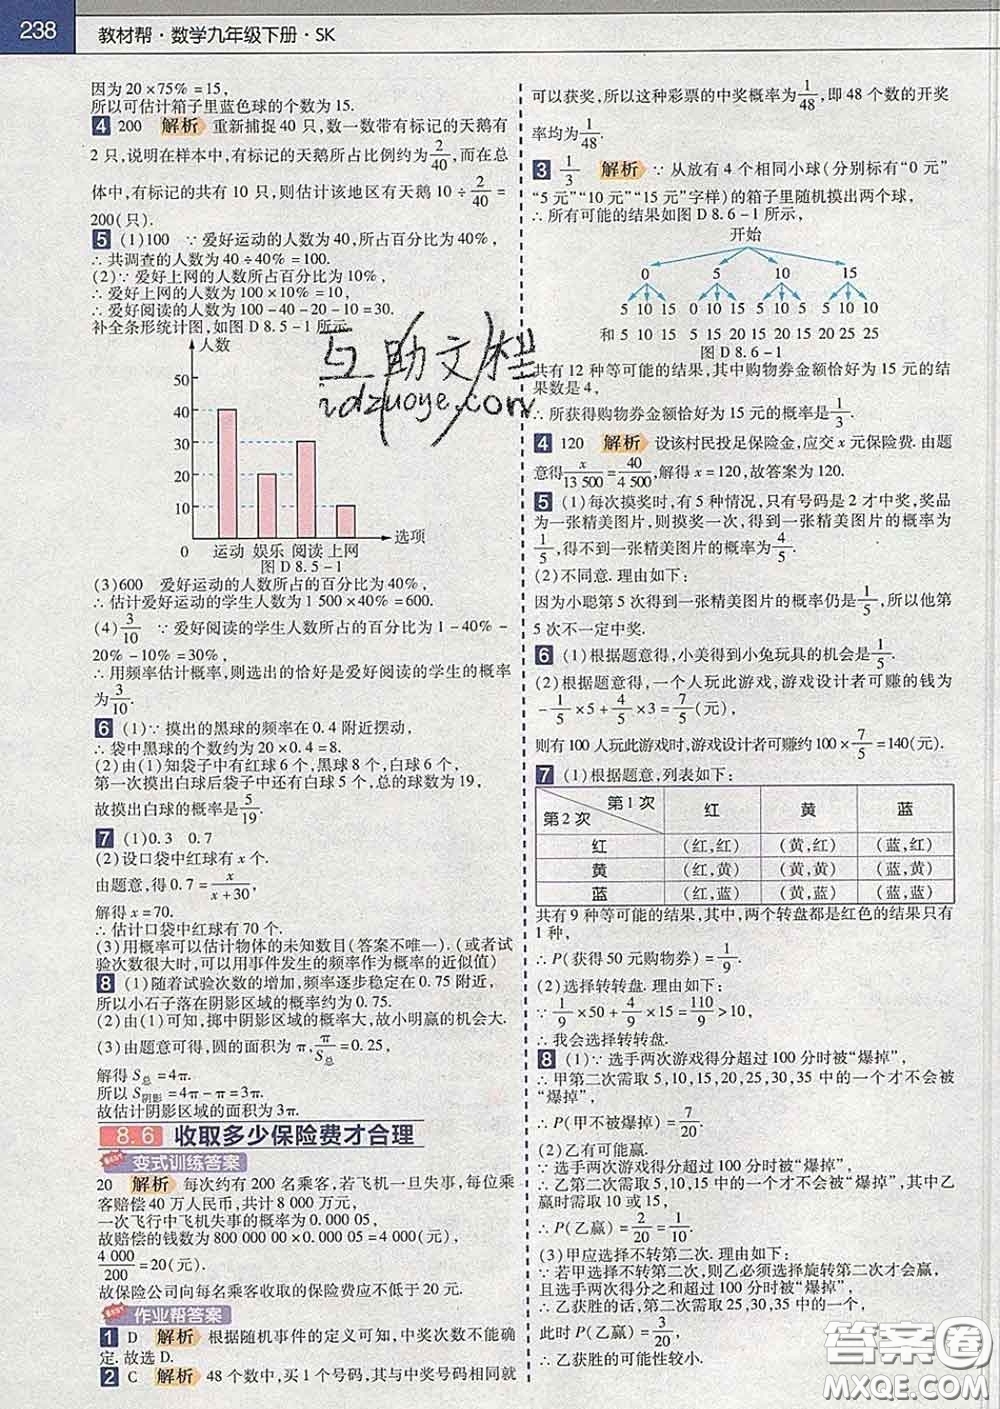 238
教材帮·数学九年级下册·SK
因为 20×75%=15,
所以可估计箱子里蓝色球的个数为 15.
4 200 解析 重新捕捉 40 只,数一数带有标记的天鹅有
2 只,说明在样本中,有标记的天鹅所占比例约为 2/40,而在总
体中,有标记的共有 10 只,则估计该地区有天鹅 10÷2/40=
200(只).
5 (1)100 ∵爱好运动的人数为 40,所占百分比为 40%,
∴共调查的人数为 40÷40%=100.
(2)∵爱好上网的人数所占百分比为 10%,
∴爱好上网的人数为 100×10%=10,
∴爱好阅读的人数为 100-40-20-10=30.
补全条形统计图,如图 D 8.5-1 所示.
人数
50
40
30
20
10
0 运动 娱乐 阅读 上网 选项
图 D 8.5-1
(3)600 ∵爱好运动的人数所占的百分比为 40%,
∴估计爱好运动的学生人数为 1 500×40%=600.
(4)3/10 ∵爱好阅读的学生人数所占的百分比为 1-40%-
20%-10%=30%,
∴用频率估计概率,则选出的恰好是爱好阅读的学生的概率
为 3/10.
6 (1)∵摸出的黑球的频率在 0.4 附近摆动,
∴袋中黑球的个数约为 20×0.4=8.
(2)由(1)知袋子中有红球 6 个,黑球 8 个,白球 6 个.
第一次摸出白球后袋子中还有白球 5 个,总的球数为 19,
故摸出白球的概率是 5/19.
7 (1)0.3 0.7
(2)设口袋中红球有 x 个.
由题意,得 0.7=x/(x+30),
解得 x=70.
∴估计口袋中红球有 70 个.
(3)用概率可以估计物体的未知数目(答案不唯一).(或者试
验次数很大时,可以用事件发生的频率作为概率的近似值)
8 (1)随着试验次数的增加,频率逐步稳定在 0.75 附近,
所以小石子落在阴影区域的概率约为 0.75.
(2)由(1)可知,掷中阴影区域的概率大,故小明赢的机会大.
(3)由题意可得,圆的面积为 π,π/S总=0.25,
解得 S总=4π.
所以 S阴影=4π-π=3π.
故估计阴影区域的面积为 3π.
8.6 收取多少保险费才合理
变式训练答案
20 解析 每次约有 200 名乘客,若飞机一旦失事,每位乘
客赔偿 40 万人民币,共计 8 000 万元,
一次飞行中飞机失事的概率为 0.000 05,
故赔偿的钱数为 800 000 00×0.000 05=4 000(元),
4 000/200=20(元).
故保险公司向每名乘客收取的保险费应不低于 20 元.
作业帮答案
1 D 解析 根据随机事件的定义可知,中奖次数不能确
定.故选 D.
2 C 解析 48 个数中,买 1 个号码,其与中奖号码相同就
可以获奖,所以这种彩票的中奖概率为 1/48,即 48 个数的开奖
率均为 1/48.
3 1/3 解析 ∵从放有 4 个相同小球(分别标有“0 元”
“5 元”“10 元”“15 元”字样)的箱子里随机摸出两个球,
∴所有可能的结果如图 D 8.6-1 所示,
开始
0 5 10 15
5 10 15 0 10 15 0 5 15 0 5 10
和 5 10 15 5 15 20 10 15 25 15 20 25
图 D 8.6-1
共有 12 种等可能的结果,其中购物券金额恰好为 15 元的结
果数是 4,
∴所获得购物券金额恰好为 15 元的概率是 1/3.
4 120 解析 设该村民投足保险金,应交 x 元保险费.由题
意得 x/13 500=40/4 500,解得 x=120,故答案为 120.
5 (1)每次摸奖时,有 5 种情况,只有号码是 2 才中奖,奖品
为一张精美图片,则摸奖一次,得到一张精美图片的概率为
1/5,得不到一张精美图片的概率为 4/5.
(2)不同意.理由如下:
因为小聪第 5 次得到一张精美图片的概率仍是 1/5,所以他第
5 次不一定中奖.
6 (1)根据题意得,小美得到小兔玩具的机会是 1/5.
(2)根据题意得,一个人玩此游戏,游戏设计者可赚的钱为
-1/5×5+4/5×3=7/5(元),
则有 100 人玩此游戏时,游戏设计者可赚约 100×7/5=140(元).
7 (1)根据题意,列表如下:
第 1 次 第 2 次 红 黄 蓝
红 (红,红) (黄,红) (蓝,红)
黄 (红,黄) (黄,黄) (蓝,黄)
蓝 (红,蓝) (黄,蓝) (蓝,蓝)
共有 9 种等可能的结果,其中,两个转盘都是红色的结果只有
1 种,
∴P(获得 50 元购物券)=1/9.
(2)选择转转盘.理由如下:
∵1/9×50+4/9×15=110/9>10,
∴我会选择转转盘.
8 (1)∵选手两次游戏得分超过 100 分时被“爆掉”,
∴甲第二次需取 5,10,15,20,25,30,35 中的一个时被
“爆掉”,
∴P(甲不被爆掉)=7/20.
(2)乙有可能赢.
∵选手两次游戏得分超过 100 分时被“爆掉”,
∴乙第二次需取 5,10,15 中的一个时不被“爆掉”,其中乙
赢时需取 10 或 15,
∴P(乙赢)=2/20=1/10.
(3)甲应选择不转第二次.理由如下:
∵若甲选择不转第二次,则乙必须选择旋转第二次才会赢,
且选手两次得分之和超过 100 分时被“爆掉”,
∴乙获胜的话,第二次需取 25,30,35 中的一个,
此时 P(乙赢)=3/20,
∴乙获胜的可能性较小.
互助文档
hdzuoye.com
答案圈
MXQE.COM